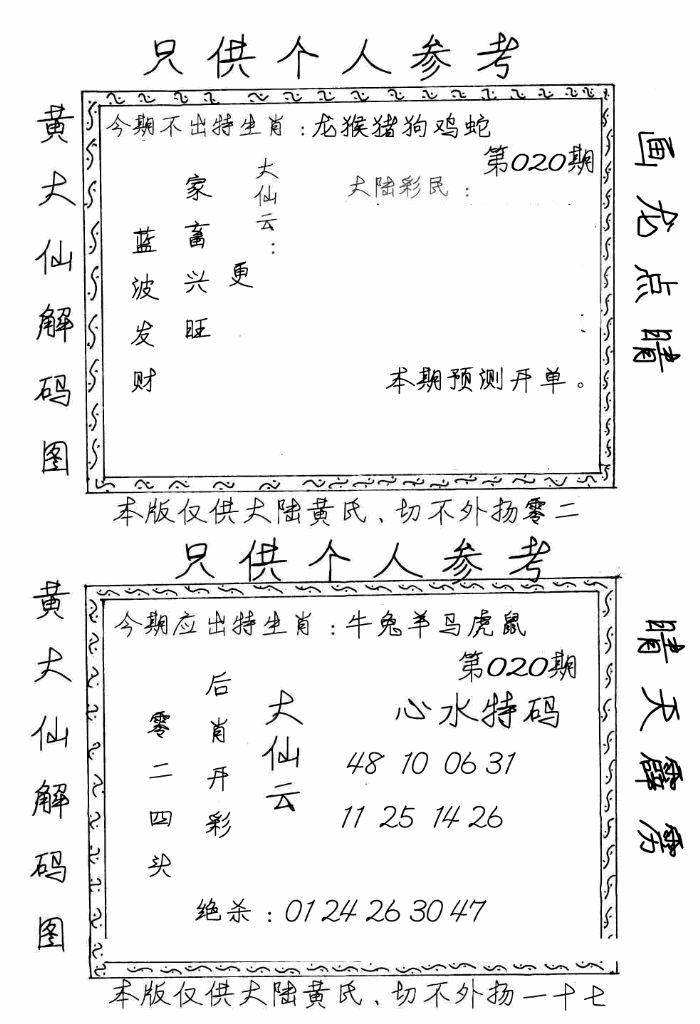 只供个人参考
黄大仙解码图
今期不出特生肖：龙猴猪狗鸡蛇
第020期
大仙云：
家畜兴旺
更
蓝波发财
大陆彩民：
本期预测开单。
画龙点睛
本版仅供大陆黄氏、切不外扬零二
只供个人参考
黄大仙解码图
今期应出特生肖：牛兔羊马虎鼠
第020期
大仙云
后肖开彩
零二四头
心水特码
48 10 06 31
11 25 14 26
绝杀：01 24 26 30 47
晴天霹雳
本版仅供大陆黄氏、切不外扬一十七